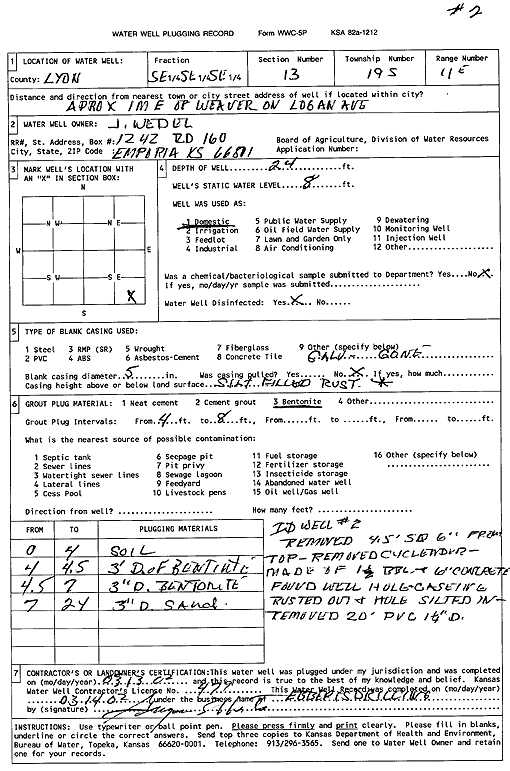 #2
WATER WELL PLUGGING RECORD Form WWC-5P KSA 82a-1212
1 LOCATION OF WATER WELL: Fraction Section Number Township Number Range Number
County: LYON SE1/4SE1/4SE1/4 13 19S 11E
Distance and direction from nearest town or city street address of well if located within city?
APROX 1M E OF WEAVER ON LOGAN AVE
2 WATER WELL OWNER: J. WEDEL
RR#, St. Address, Box #: 1242 RD 160 Board of Agriculture, Division of Water Resources
City, State, ZIP Code EMPORIA KS 66801 Application Number:
3 MARK WELL'S LOCATION WITH AN "X" IN SECTION BOX:
N
N W N E
W E
S W S E
X
S
4 DEPTH OF WELL 24 ft.
WELL'S STATIC WATER LEVEL 8 ft.
WELL WAS USED AS:
1 Domestic 5 Public Water Supply 9 Dewatering
2 Irrigation 6 Oil Field Water Supply 10 Monitoring Well
3 Feedlot 7 Lawn and Garden Only 11 Injection Well
4 Industrial 8 Air Conditioning 12 Other
Was a chemical/bacteriological sample submitted to Department? Yes....No X
If yes, mo/day/yr sample was submitted
Water Well Disinfected: Yes X No......
5 TYPE OF BLANK CASING USED:
1 Steel 3 RMP (SR) 5 Wrought 7 Fiberglass 9 Other (specify below)
2 PVC 4 ABS 6 Asbestos-Cement 8 Concrete Tile GALV - GONE
Blank casing diameter 5 in. Was casing pulled? Yes...... No X If yes, how much
Casing height above or below land surface SILT FILLED RUST
6 GROUT PLUG MATERIAL: 1 Neat cement 2 Cement grout 3 Bentonite 4 Other
Grout Plug Intervals: From 4 ft. to 8 ft., From...... ft. to......ft., From...... to......ft.
What is the nearest source of possible contamination:
1 Septic tank 6 Seepage pit 11 Fuel storage 16 Other (specify below)
2 Sewer lines 7 Pit privy 12 Fertilizer storage
3 Watertight sewer lines 8 Sewage lagoon 13 Insecticide storage
4 Lateral lines 9 Feedyard 14 Abandoned water well
5 Cess Pool 10 Livestock pens 15 Oil well/Gas well
Direction from well? How many feet?
FROM TO PLUGGING MATERIALS
0 4 SOIL
4 4.5 3' D. OF BENTINITE
4.5 7 3" D. BENTONITE
7 24 3" D. SAND.
ID WELL #2
REMOVED 4.5' SQ 6" FROM
TOP - REMOVED CYCLENDUR -
MADE OF 1½ BBL + 1½" CONCRETE
FOUND WELL HOLE - CASEING
RUSTED OUT & HOLE SILTED IN -
REMOVED 20' PVC 1½" D.
7 CONTRACTOR'S OR LANDOWNER'S CERTIFICATION: This water well was plugged under my jurisdiction and was completed
on (mo/day/year) 03.13.02 and this record is true to the best of my knowledge and belief. Kansas
Water Well Contractor's License No. This Water Well Record was completed on (mo/day/year)
03.14.02 under the business name of EGBERTS DRILLING
by (signature)
INSTRUCTIONS: Use typewriter or ball point pen. Please press firmly and print clearly. Please fill in blanks,
underline or circle the correct answers. Send top three copies to Kansas Department of Health and Environment,
Bureau of Water, Topeka, Kansas 66620-0001. Telephone: 913/296-3565. Send one to Water Well Owner and retain
one for your records.